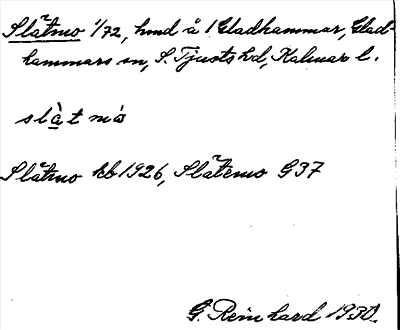 Slätmo 1/72, hmd å 1 Gladhammar, Glad-
hammars sn, S. Tjusts hd, Kalmar l.
slàt mó
Slätmo kb 1926, Slätemo G37
G. Reinhard 1930.